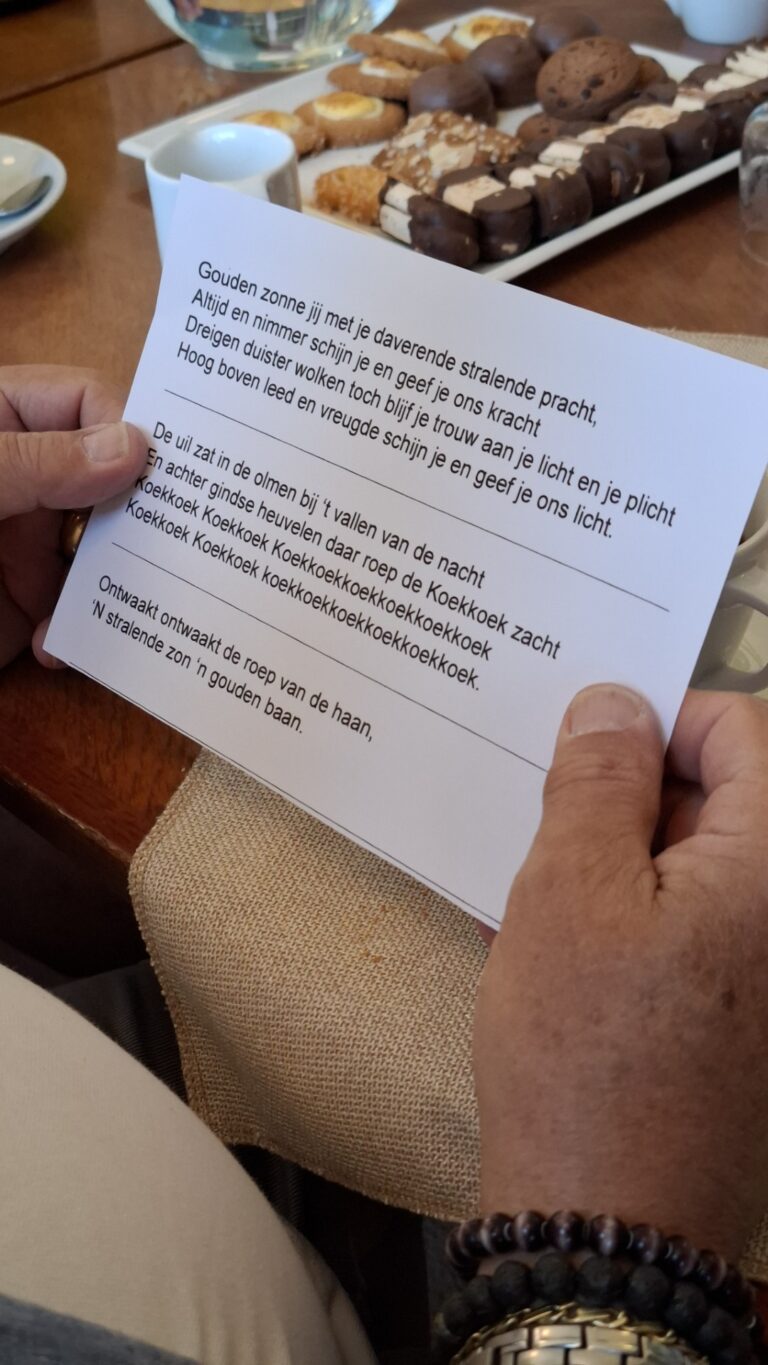 Gouden zonne jij met je daverende stralende pracht,
Altijd en nimmer schijn je en geef je ons kracht
Dreigen duister wolken toch blijf je trouw aan je licht en je plicht
Hoog boven leed en vreugde schijn je en geef je ons licht.
De uil zat in de olmen bij ‘t vallen van de nacht
En achter gindse heuvelen daar roep de Koekkoek zacht
Koekkoek Koekkoek Koekkoekkoekkoekkoekkoek
Koekkoek Koekkoek koekkoekkoekkoekkoekkoek.
Ontwaakt ontwaakt de roep van de haan,
‘N stralende zon ‘n gouden baan.